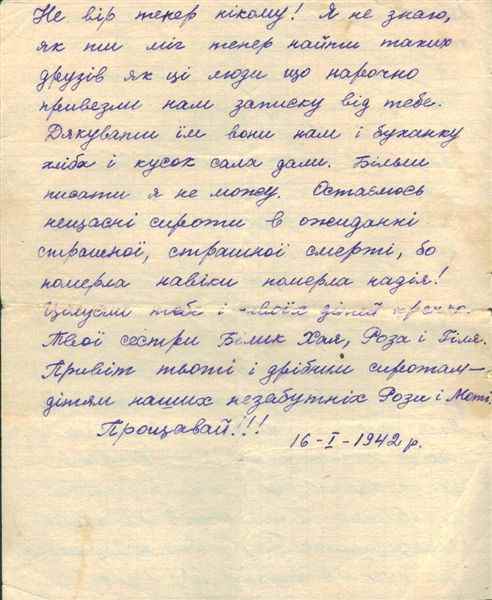 Не вір тепер нікому! Я не знаю,
як ти міг тепер найти таких
друзів як ці люди що нарочно
привезли нам записку від тебе.
Дякувати їм вони нам і буханку
хліба і кусок сала дали. Більш
писати я не можу. Остаємось
нещасні сироти в ожиданні
страшної, страшної смерті, бо
померла навіки померла надія!
Цілуєм тебе і твоїх дітей кречко.
Твої сестри Білик Хая, Роза і Гіля.
Привіт тьоті і дрібним сиротам—
дітям наших незабутніх Рози і Моті
Прощавай!!!
16-I-1942 р.